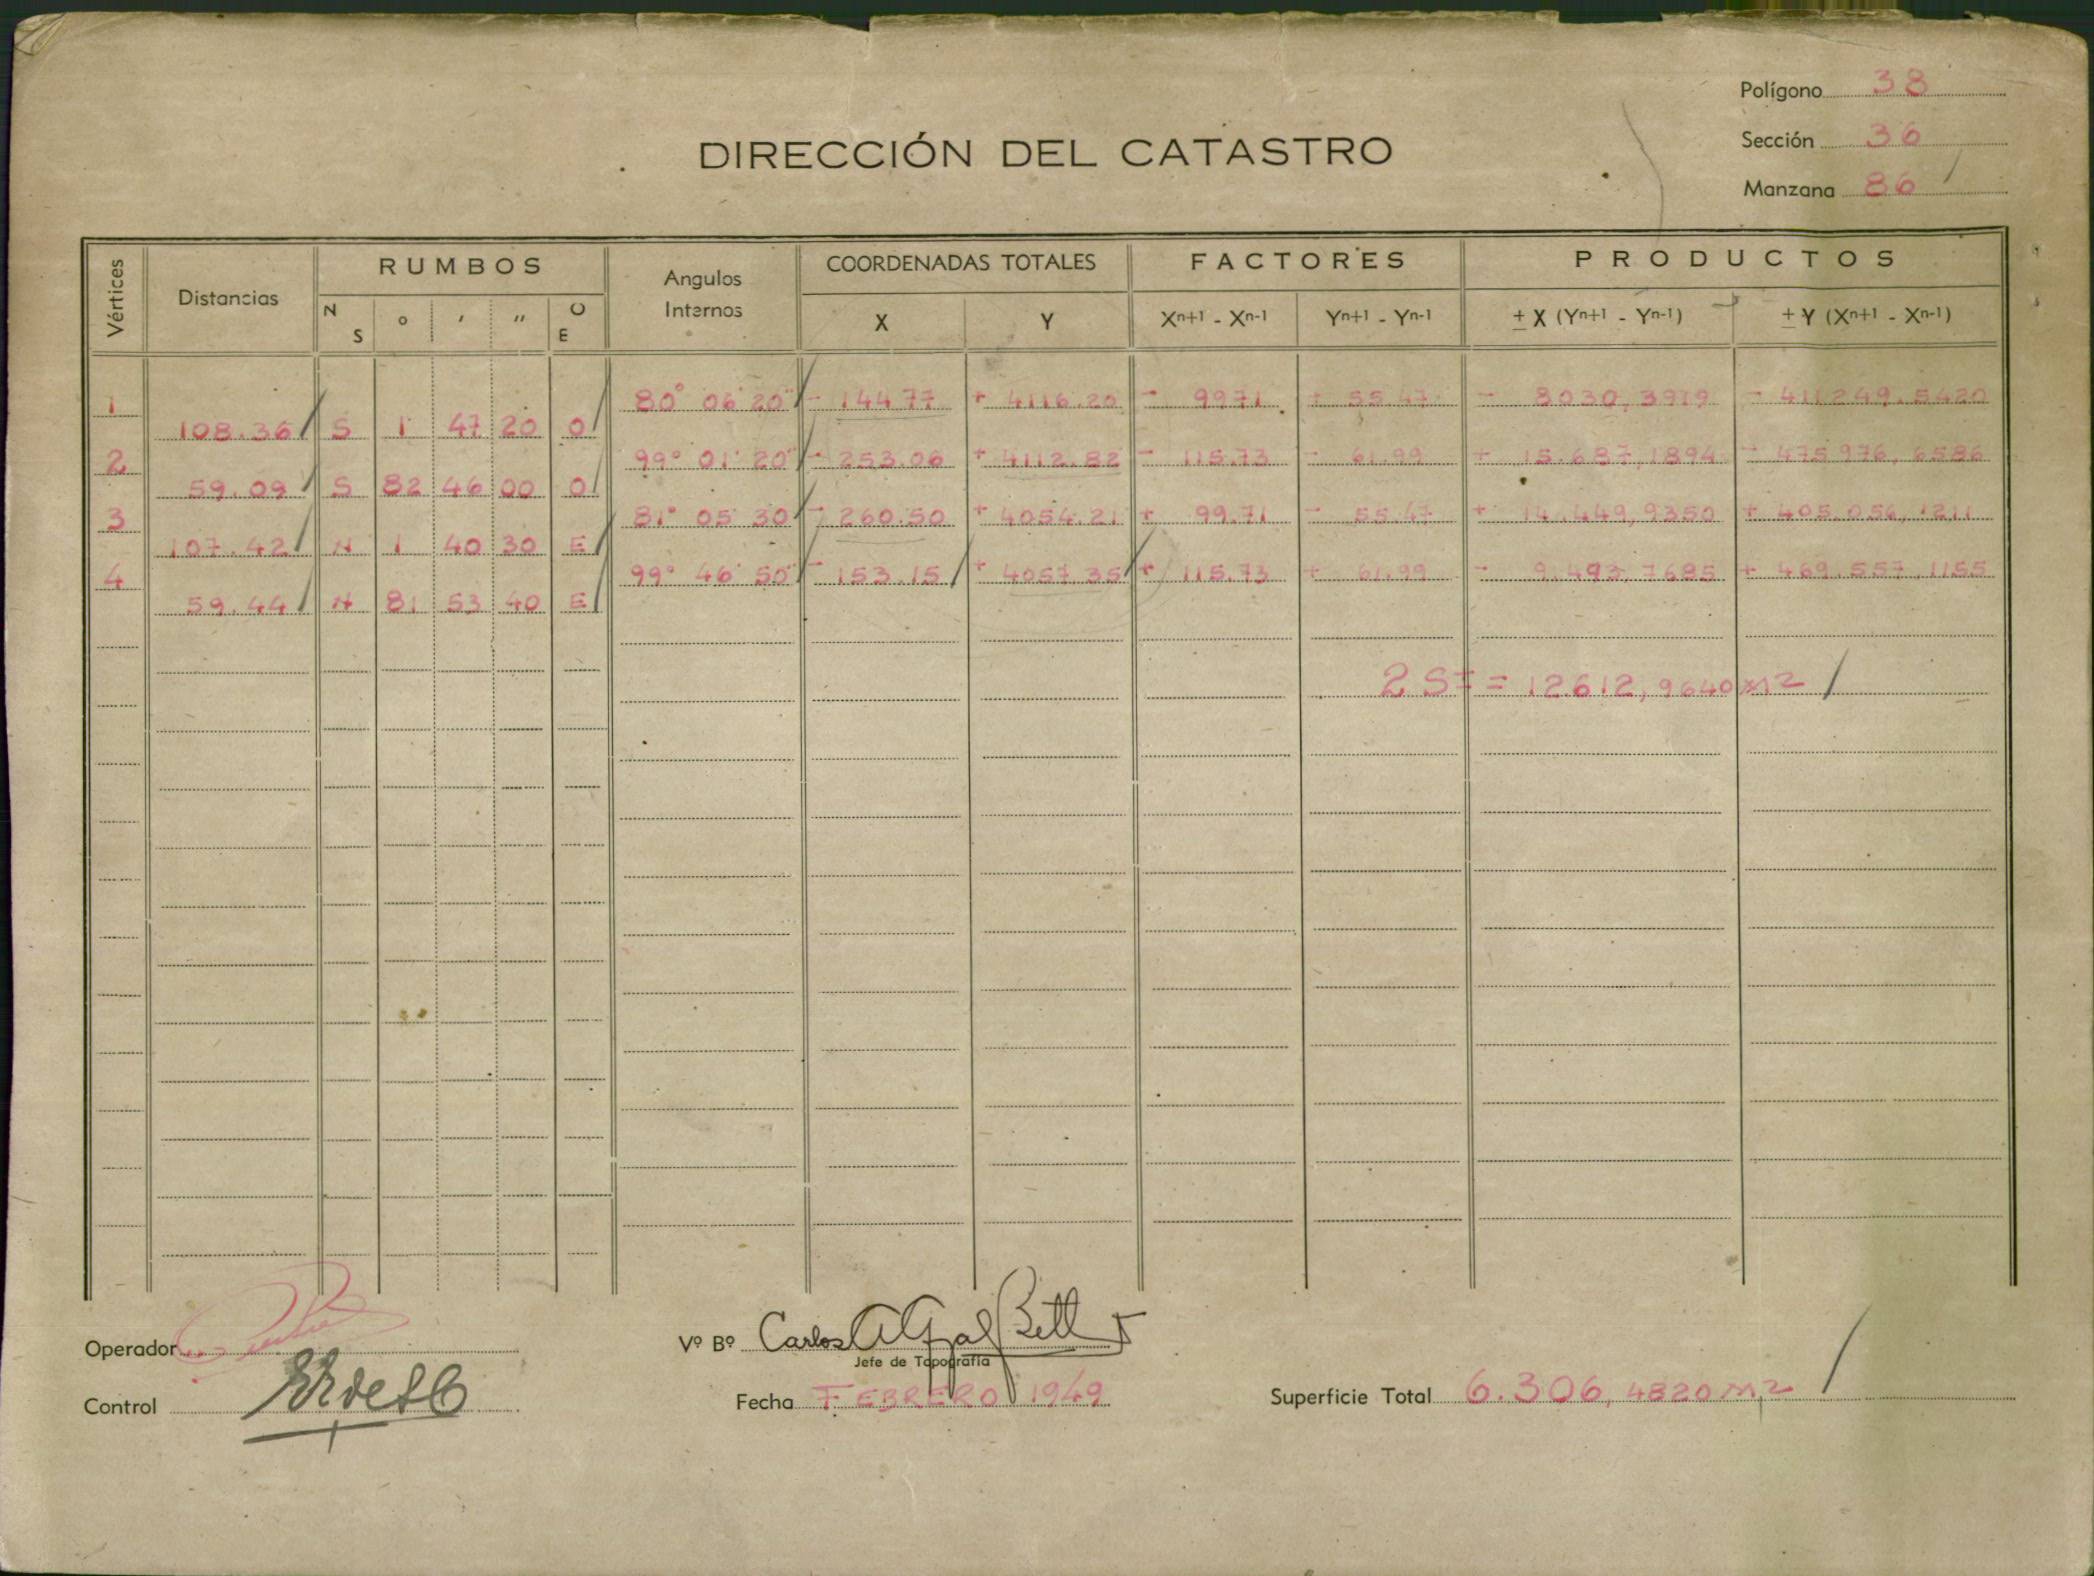 Polígono 38
Sección 36
Manzana 86
DIRECCIÓN DEL CATASTRO
Vértices Distancias RUMBOS Angulos Internos COORDENADAS TOTALES FACTORES PRODUCTOS
N S ° ′ ″ O E X Y Xⁿ⁺¹ - Xⁿ⁻¹ Yⁿ⁺¹ - Yⁿ⁻¹ ± X (Yⁿ⁺¹ - Yⁿ⁻¹) ± Y (Xⁿ⁺¹ - Xⁿ⁻¹)
1 80° 06' 20" - 144.77 + 4116.20 - 99.71 + 55.47 - 8030,3919 - 411249.5420
108.36 S 1 47 20 O
2 99° 01' 20" - 253.06 + 4112.82 - 115.73 - 61.99 + 15.687,1894 - 475976,6586
59.09 S 82 46 00 O
3 81° 05' 30" - 260.50 + 4054.21 + 99.71 - 55.47 + 14.449,9350 + 405.056,1211
107.42 N 1 40 30 E
4 99° 46' 50" - 153.15 + 4057.35 + 115.73 + 61.99 - 9.493,7685 + 469.557,1155
59.44 N 81 53 40 E
2 S = 12.612,9640 m2
Operador
Vº Bº Carlos A
Jefe de Topografía
Control
Fecha FEBRERO 1949
Superficie Total 6.306,4820 m2